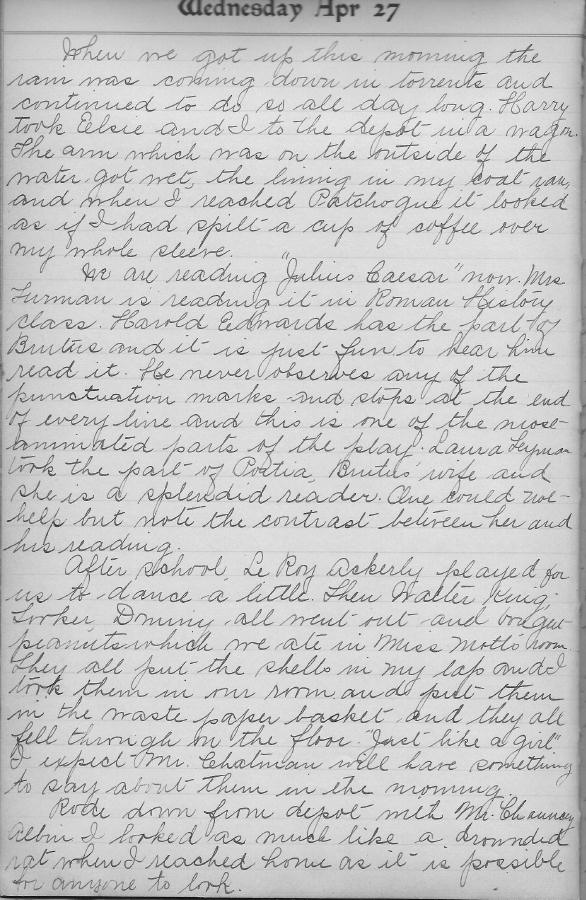 Wednesday Apr 27
When we got up this morning the
rain was coming down in torrents and
continued to do so all day long. Harry
took Eelsie and I to the depot in a wagon.
The arm which was on the outside of the
water got wet, the lining in my coat ran,
and when I reached Patchogue it looked
as if I had spilt a cup of coffee over
my whole sleeve.
We are reading "Julius Caesar" now. Mrs
Furman is reading it in Roman History
class. Harold Edwards has the part of
Brutus and it is just fun to hear him
read it. He never observes any of the
punctuation marks and stops at the end
of every line and this is one of the most
ammated parts of the play. Laura Lyman
took the part of Portia, Brutus' wife and
she is a splendid reader. One could not
help but note the contrast between her and
his reading.
After school, Le Roy Ackerly played for
us to dance a little. Then Walter King,
Losker, all went out and bought
peanuts which we ate in Miss Mott's room.
They all put the shells in my lap and I
took them in our room and put them
in the waste paper basket and they all
fell through on the floor. "Just like a girl".
I expect Mr. Chatman will have something
to say about them in the morning.
Rode down from depot with Mr. Chauncey
Albin I looked as much like a drownded
rat when I reached home as it is possible
for anyone to look.